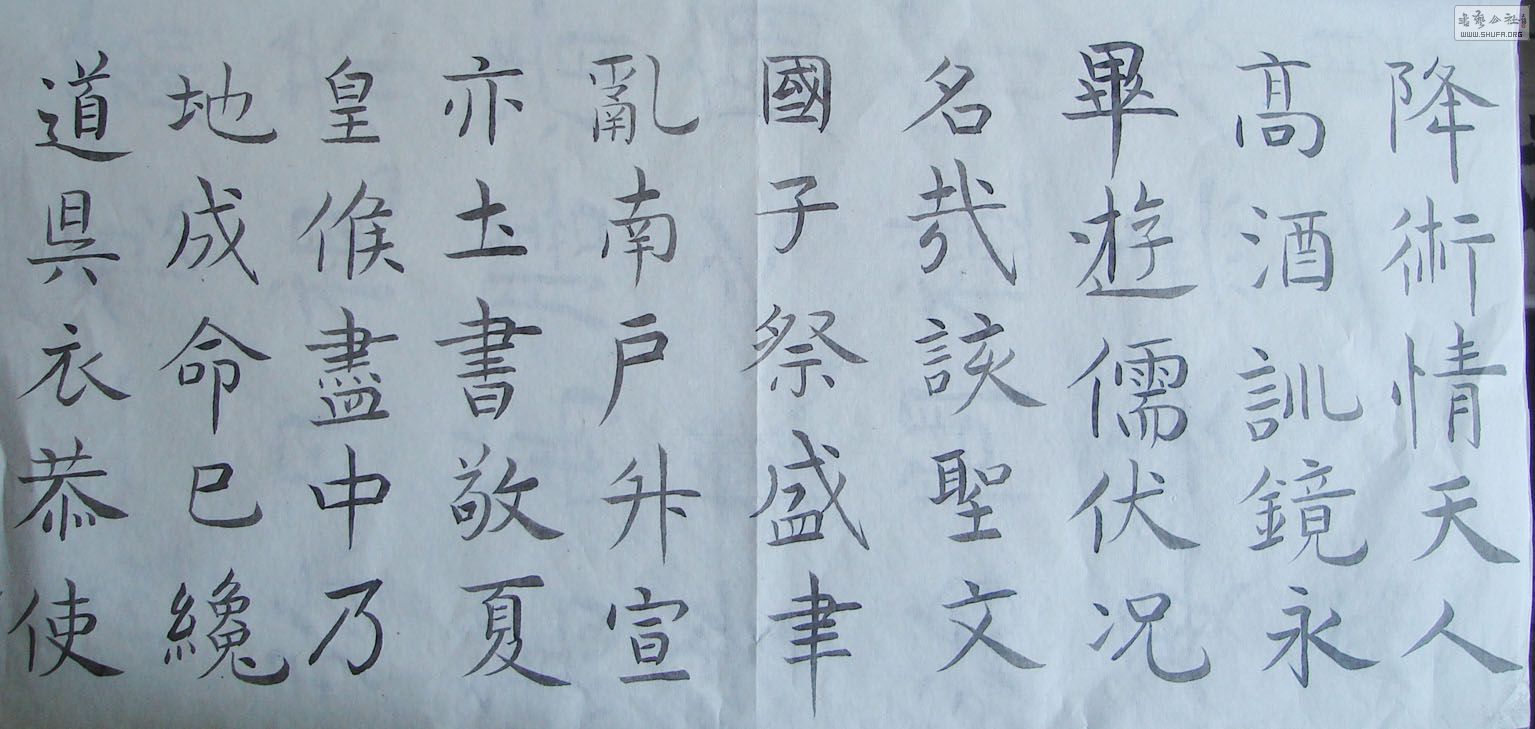 降術情天人
高酒訓鏡永
畢遊儒伏况
名哉該聖文
國子祭盛聿
亂南户升宣
亦土書敬夏
皇候盡中乃
地成命已纔
道具衣恭使
書藝公社
WWW.SHUFA.ORG